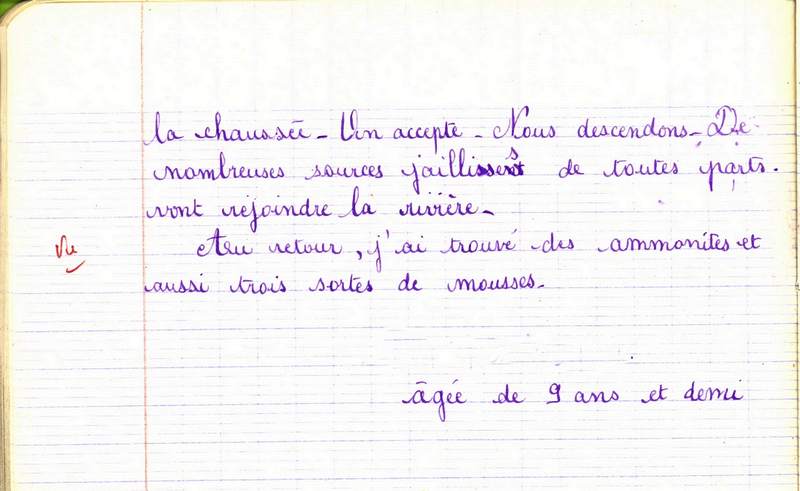 la chaussée - On accepte - Nous descendons - De
nombreuses sources jaillissent de toutes parts.
vont rejoindre la rivière -
Vu
Au retour, j'ai trouvé des ammonites et
aussi trois sortes de mousses -
âgée de 9 ans et demi